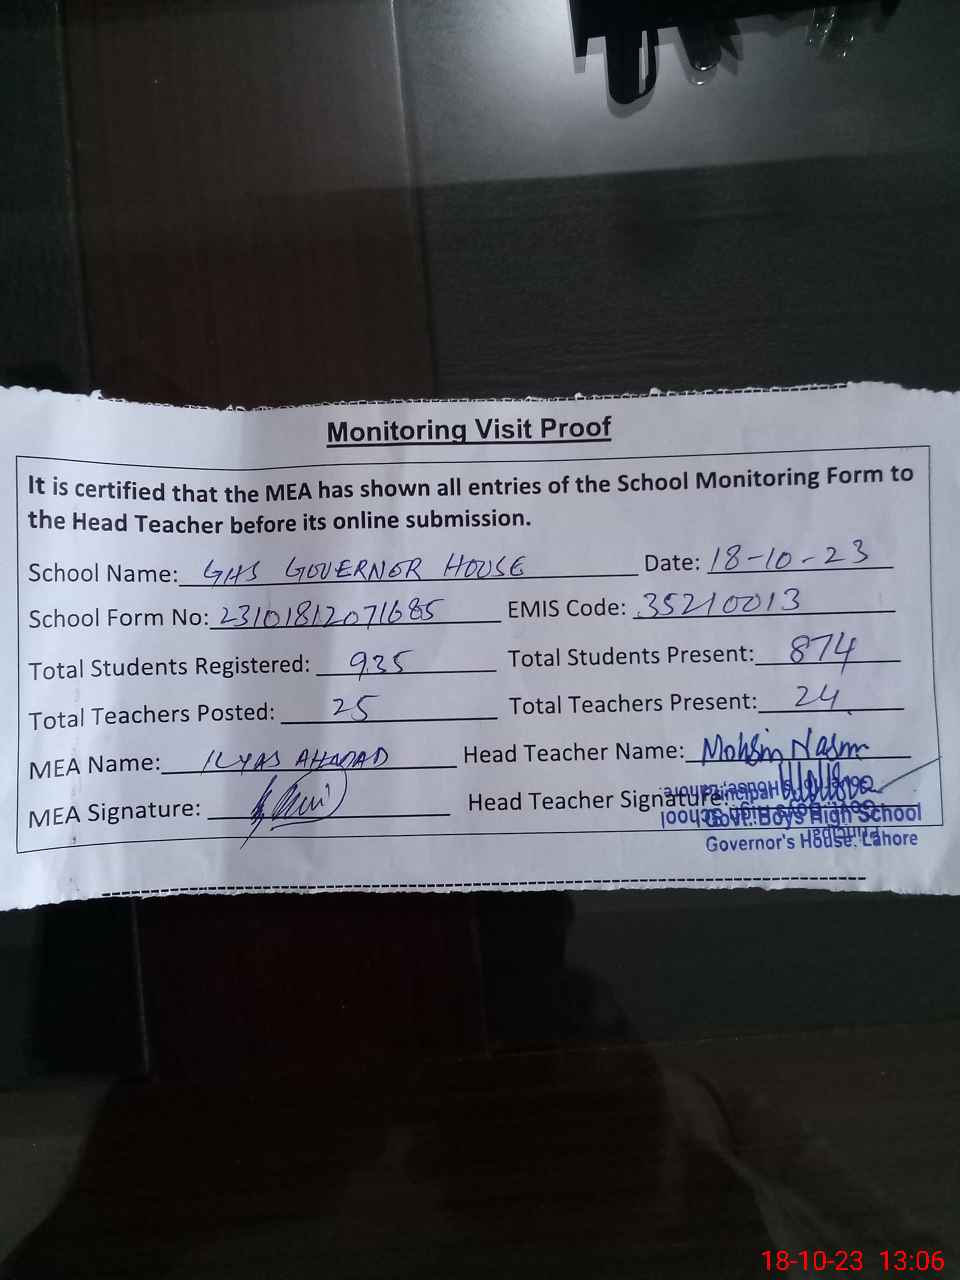 Monitoring Visit Proof
It is certified that the MEA has shown all entries of the School Monitoring Form to
the Head Teacher before its online submission.
School Name: GHS GOVERNOR HOUSE Date: 18-10-23
School Form No: 23101812071685 EMIS Code: 35210013
Total Students Registered: 935 Total Students Present: 874
Total Teachers Posted: 25 Total Teachers Present: 24
MEA Name: ILYAS AHMAD Head Teacher Name: Mohsin Nasim
MEA Signature: Head Teacher Signature:
Principal
Govt. Boys High School
Governor's House, Lahore
18-10-23 13:06